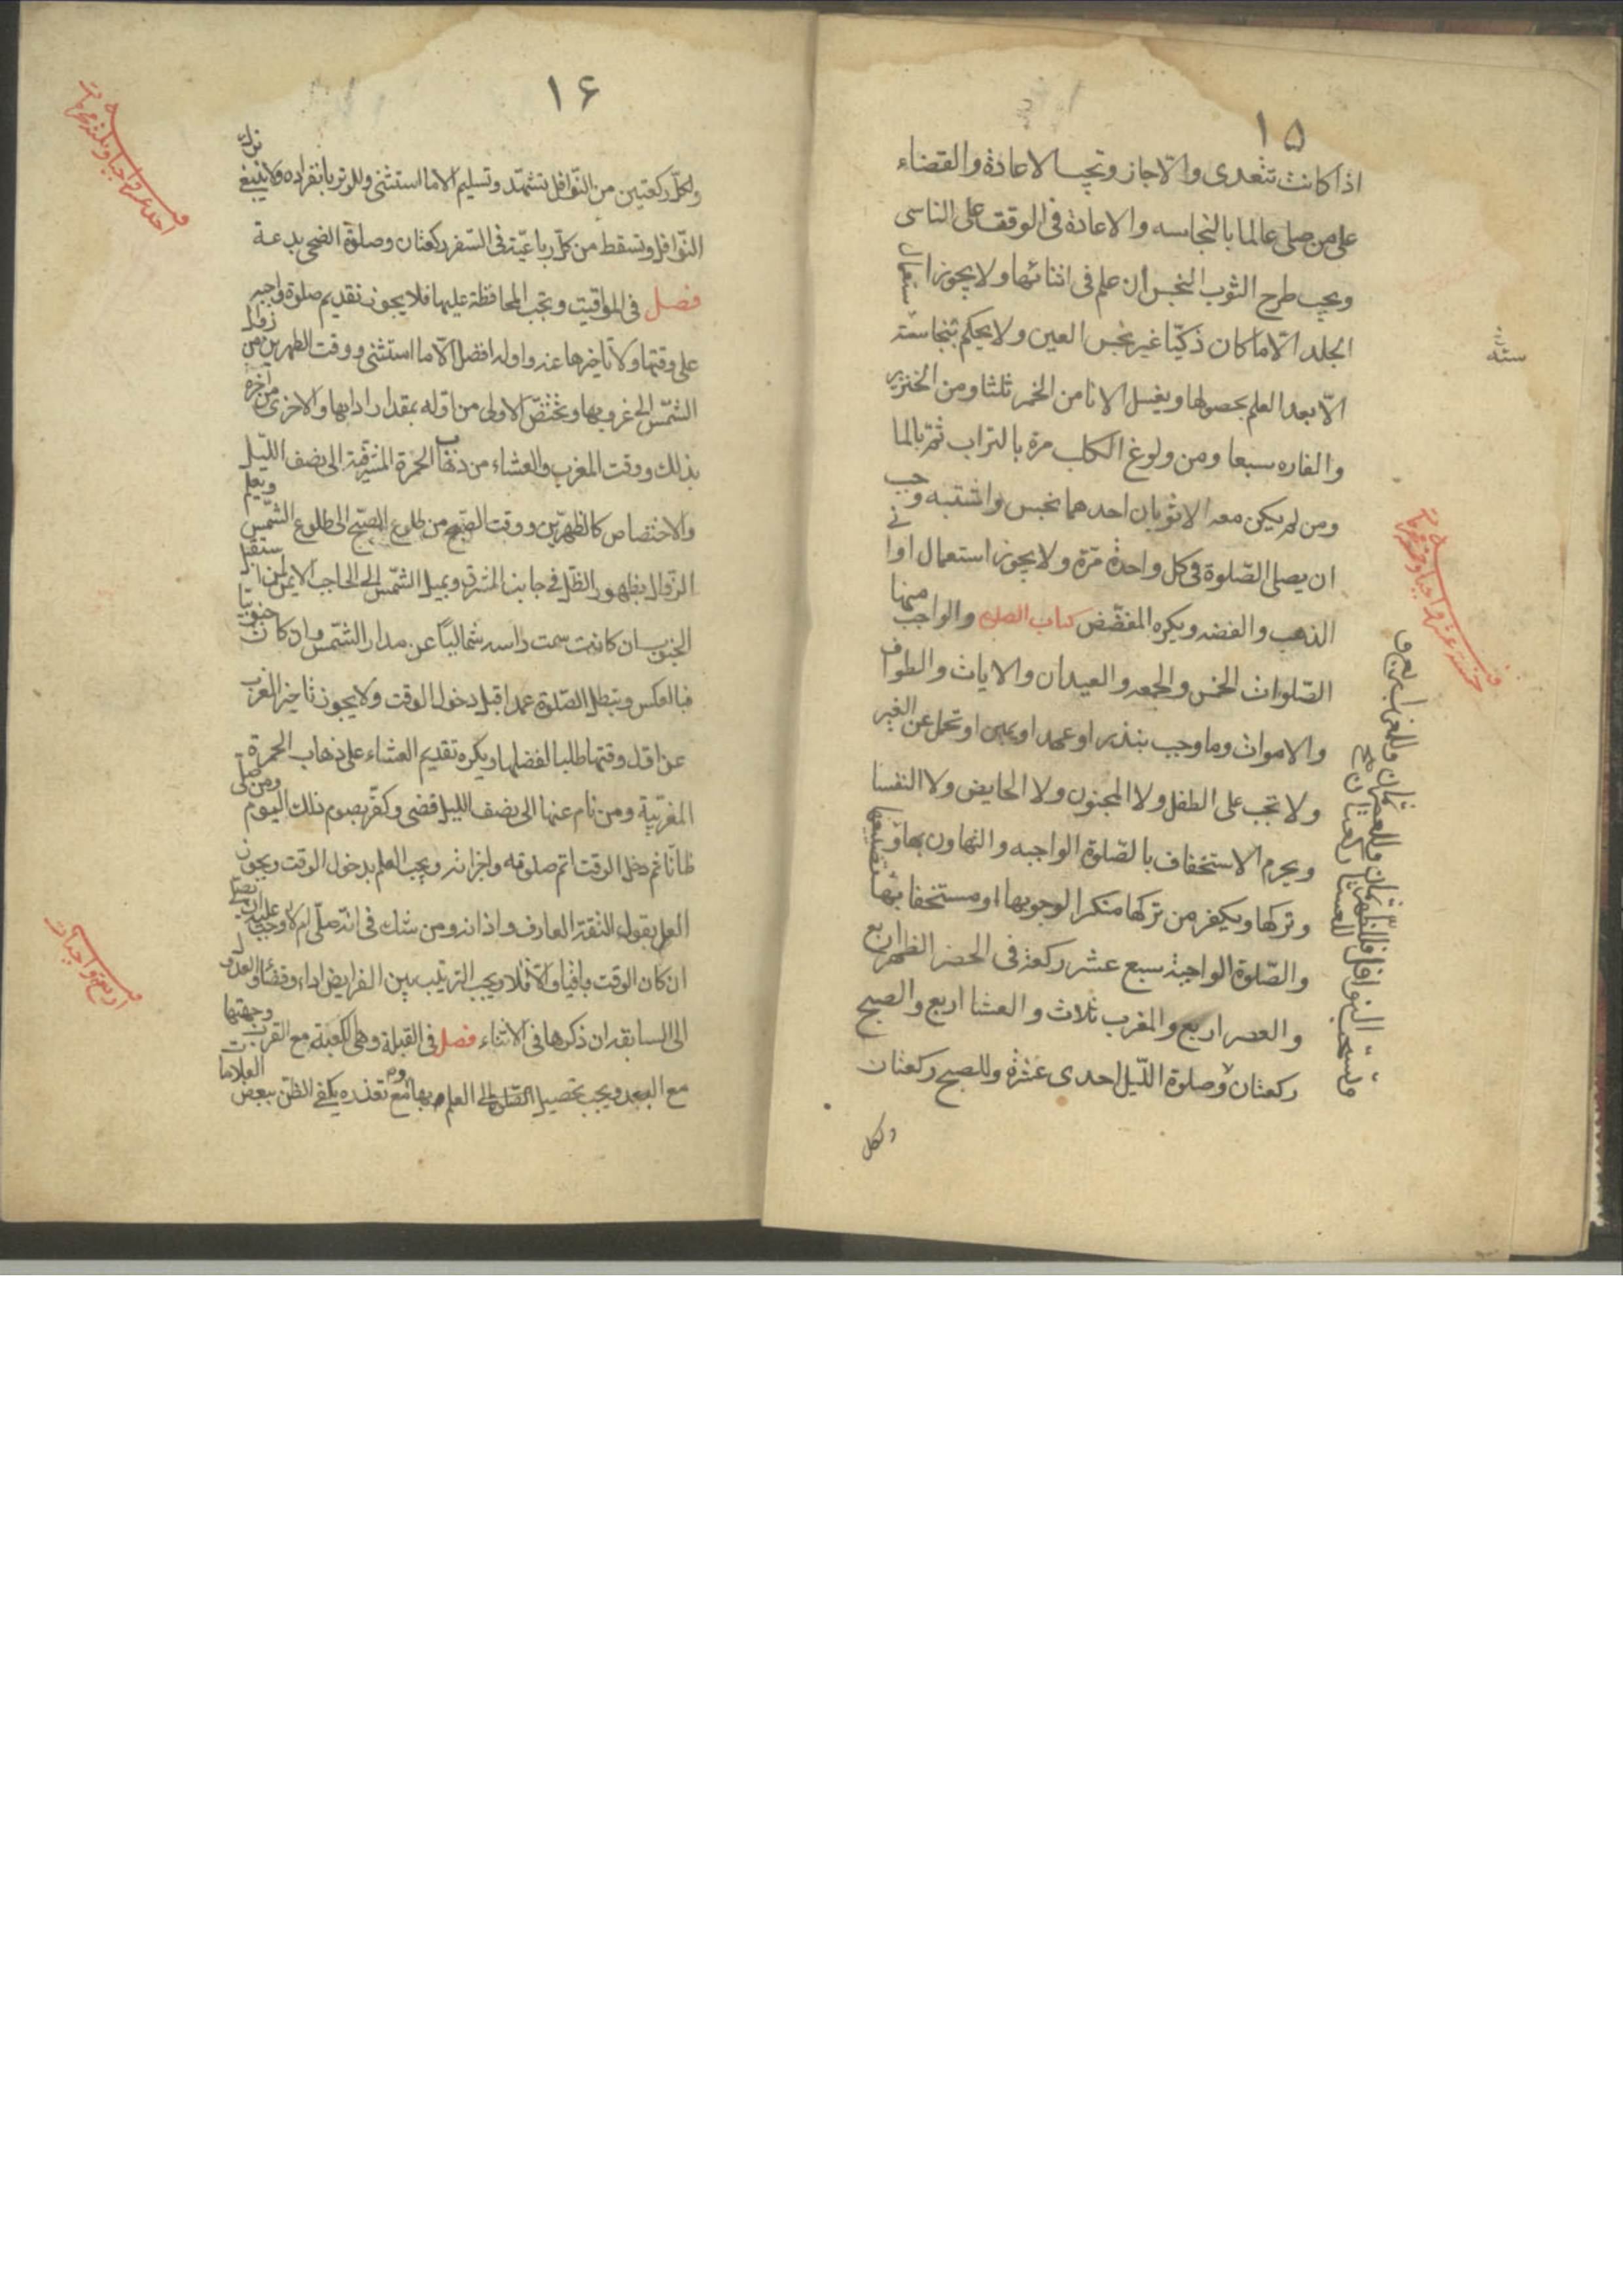 ١٥
اذا كانت تتعدى والا جاز وتجب الاعادة والقضاء
على من صلى عالما بالنجاسه والاعادة فى الوقت على الناسى
ويجب طرح الثوب النجس ان علم فى اثنائها ولا يجوز استعمال
الجلد الّا ما كان ذكيّا غير نجس العين ولا يحكم بنجاسته
الّا بعد العلم بحصولها ويغسل الانا من الخمر ثلثا ومن الخنزير
والفاره سبعا ومن ولوغ الكلب مرة بالتراب ثم بالما
ومن لم يكن معه الا ثوبان احدهما نجس واشتبه وجب
ان يصلى الصّلوة فى كل واحدة مرّة ولا يجوز استعمال اوانى
الذهب والفضه ويكره المفضّض كتاب الصلوة والواجب منها
الصّلوات الخمس والجمعه والعيدان والايات والطواف
والاموات وما وجب بنذر او عهد او يمين او تحمل عن الغير
ولا تجب على الطفل ولا المجنون ولا الحايض ولا النفسا
ويحرم الاستخفاف بالصّلوة الواجبه والتهاون بها وتضييعها
وتركها ويكفر من تركها منكرا لوجوبها او مستخفا بها
والصّلوة الواجبة سبع عشر ركعة فى الحضر الظهر اربع
والعصر اربع والمغرب ثلاث والعشا اربع والصبح
ركعتان وصلوة اللّيل احدى عشرة وللصبح ركعتان
ولكل
ستة
١۶
ولكلّ ركعتين من النّوافل تشهّد وتسليم الا ما استثنى وللوتر بانفراده ولا ينبغى ترك
النّوافل وتسقط من كلّ رباعيّة فى السّفر ركعتان وصلوة الضحى بدعة
فصل فى المواقيت وتجب المحافظة عليها فلا يجوز تقديم صلوة واجبه
على وقتها ولا تأخيرها عنه واوله افضل الّا ما استثنى ووقت الظهرين من زوال
الشّمس الى غروبها وتختصّ الاولى من اوّله بمقدار ادائها والاخرى من اخره
بذلك ووقت المغرب والعشاء من ذهاب الحمرة المشرقيّة الى نصف اللّيل
والاختصاص كالظهرين ووقت الصّبح من طلوع الصّبح الى طلوع الشّمس ويعلم
الزّوال بظهور الظّل فى جانب المشرق وبميل الشّمس الى الحاجب الايمن لمن استقبل
الجنوب ان كانت سمت راسه شماليّا عن مدار الشّمس وان كان جنوبيّا
فبالعكس ويبطل الصّلوة عمدا قبل دخول الوقت ولا يجوز تأخير المغرب
عن اوّل وقتها طلبا لفضلها ويكره تقديم العشاء على ذهاب الحمرة
المغربيّة ومن نام عنها الى نصف الليل قضى وكفّر بصوم ذلك اليوم ومن صلّى
ظانّا ثم دخل الوقت اتم صلوته واجزائه ويجب العلم بدخول الوقت ويجوز
العمل بقول الثقة العارف واذانه ومن شك فى انّه صلّى ام لا وجب عليه ان يصلّى
ان كان الوقت باقيا والّا فلا ويجب الترتيب بين الفرايض اداء وقضاء والعدول
الى السابقة ان ذكرها فى الاثناء فصل فى القبلة وهى الكعبة مع القرب وجهتها
مع البعد ويجب تحصيل العلم بها ومع تعذره يكفى الظن ببعض العلامات